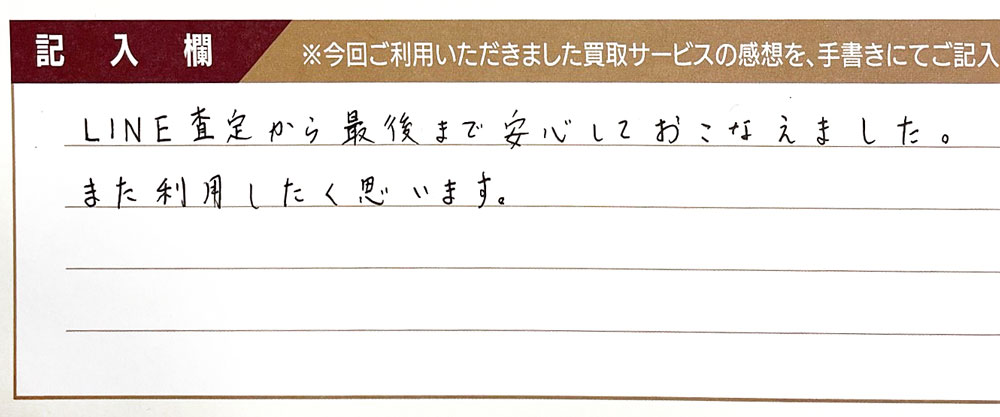 記入欄
※今回ご利用いただきました買取サービスの感想を、手書きにてご記入
LINE査定から最後まで安心しておこなえました。
また利用したく思います。